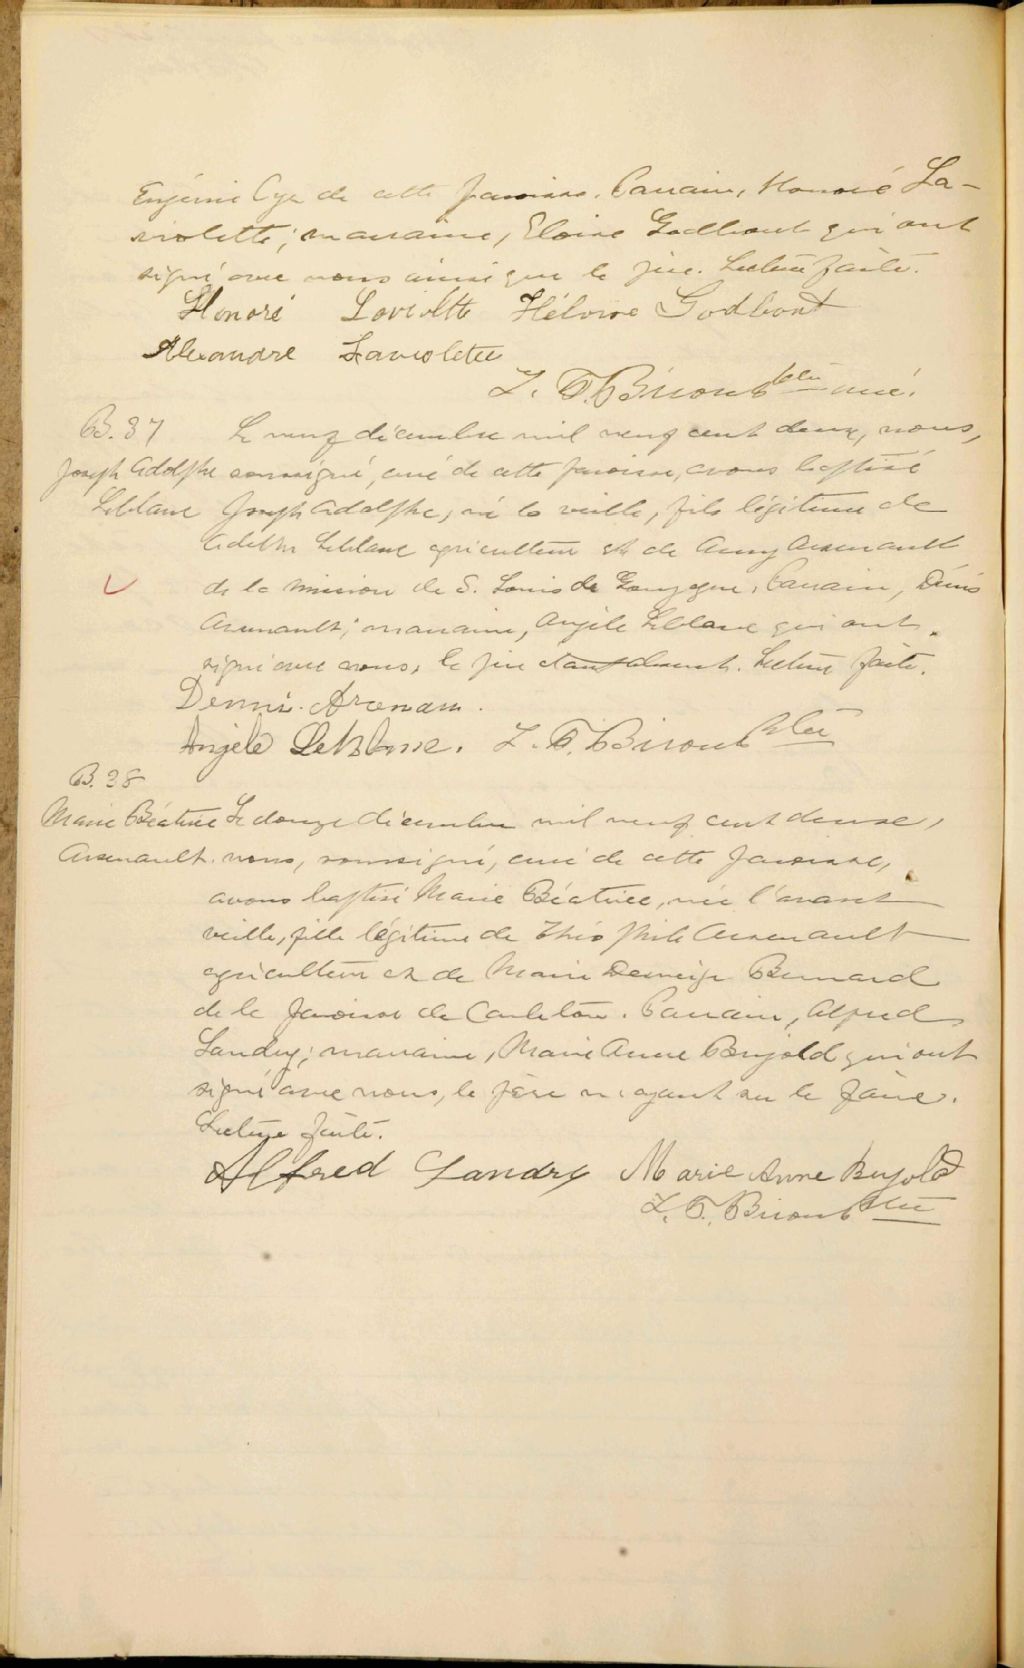 Eugénie Cyr de cette paroisse. Parrain, Honoré La-
violette; marraine, Eloise Godbout qui ont
signé avec nous ainsi que le père. Lecture faite.
Honoré Laviolette Héloise Godbout
Alexandre Laviolette
J. T. Bérubé ptre curé.
B. 37 Le neuf décembre mil neuf cent deux, nous,
Joseph Adolphe soussigné, curé de cette paroisse, avons baptisé
Leblanc Joseph Adolphe, né la veille, fils légitime de
Leblanc agriculteur et de Arsenault
de la mission de S. Louis de Gonzague. Parrain, Denis
Arsenault; marraine, Angèle Leblanc qui ont
signé avec nous, le père étant absent. Lecture faite.
Dennis Arsenau.
Angèle LeBlanc. ptre
B. 38
Marie Béatrice Le douze décembre mil neuf cent deux,
Arsenault. nous, soussigné, curé de cette paroisse,
avons baptisé Marie Béatrice, née l'avant
veille, fille légitime de Théophile Arsenault
agriculteur et de Marie Bernard
de la paroisse de Carleton. Parrain, Alfred
Landry; marraine, Marie Anne Bujold qui ont
signé avec nous, le père n'ayant su le faire.
Lecture faite.
Alfred Landry Marie Anne Bujold
ptre